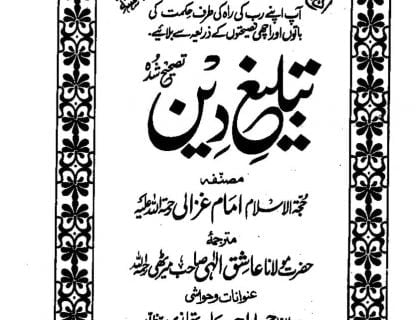 آپ اپنے رب کی راہ کی طرف حکمت کی
باتوں اور اچھی نصیحتوں کے ذریعہ سے بلائیے۔
تصحیح شدہ
تبلیغ دین
مصنفہ
حجۃ الاسلام امام غزالی رحمۃ اللہ علیہ
مترجمہ
حضرت مولانا عاشق الٰہی صاحب میرٹھی رحمۃ اللہ
عنوانات و حواشی